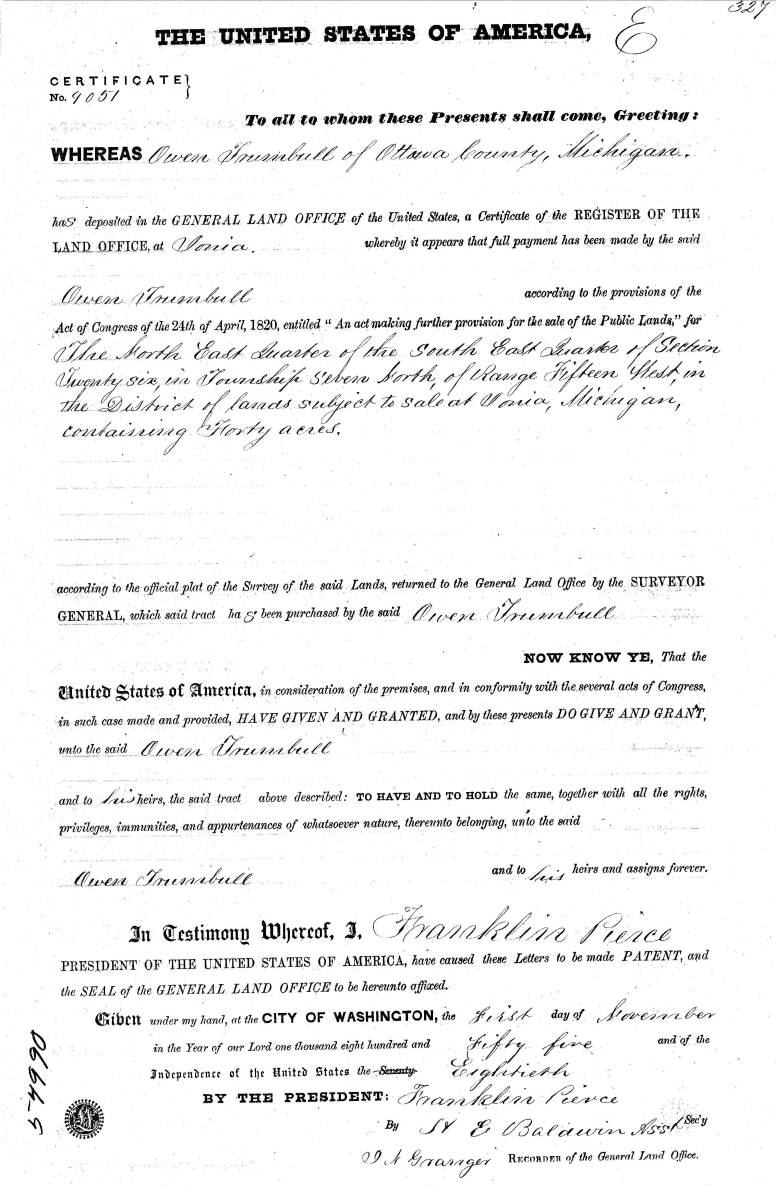 327
THE UNITED STATES OF AMERICA, E
CERTIFICATE
No. 9051
To all to whom these Presents shall come, Greeting:
WHEREAS Owen Trumbull of Ottawa County, Michigan.
has deposited in the GENERAL LAND OFFICE of the United States, a Certificate of the REGISTER OF THE
LAND OFFICE, at Ionia. whereby it appears that full payment has been made by the said
Owen Trumbull according to the provisions of the
Act of Congress of the 24th of April, 1820, entitled "An act making further provision for the sale of the Public Lands," for
The North East Quarter of the South East Quarter of Section
Twenty six, in Township Seven North, of Range Fifteen West, in
the District of lands subject to sale at Ionia, Michigan,
containing Forty acres.
according to the official plat of the Survey of the said Lands, returned to the General Land Office by the SURVEYOR
GENERAL, which said tract has been purchased by the said Owen Trumbull
NOW KNOW YE, That the
United States of America, in consideration of the premises, and in conformity with the several acts of Congress,
in such case made and provided, HAVE GIVEN AND GRANTED, and by these presents DO GIVE AND GRANT,
unto the said Owen Trumbull
and to his heirs, the said tract above described: TO HAVE AND TO HOLD the same, together with all the rights,
privileges, immunities, and appurtenances of whatsoever nature, thereunto belonging, unto the said
Owen Trumbull and to his heirs and assigns forever.
In Testimony Whereof, I, Franklin Pierce
PRESIDENT OF THE UNITED STATES OF AMERICA, have caused these Letters to be made PATENT, and
the SEAL of the GENERAL LAND OFFICE to be hereunto affixed.
Given under my hand, at the CITY OF WASHINGTON, the First day of November
in the Year of our Lord one thousand eight hundred and Fifty five and of the
Independence of the United States the Seventy Eightieth
BY THE PRESIDENT: Franklin Pierce
By H E Baldwin Asst Sec'y
J N Granger RECORDER of the General Land Office.